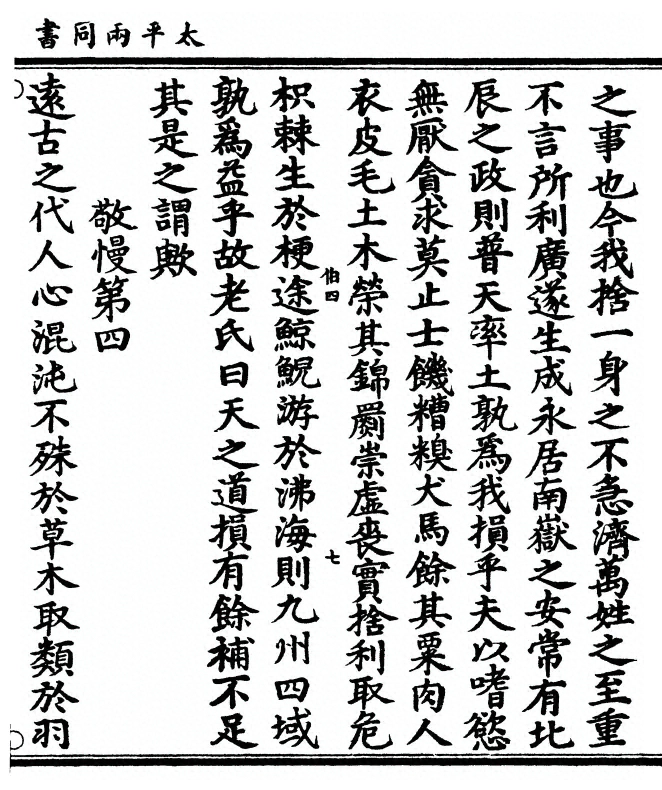 太平兩同書
之事也今我捨一身之不急濟萬姓之至重
不言所利廣遂生成永居南嶽之安常有北
辰之政則普天率土孰爲我損乎夫以嗜慾
無厭貪求莫止士饑糟糗犬馬餘其粟肉人
衣皮毛土木榮其錦罽崇虛喪實捨利取危
伯四
七
枳棘生於梗途鯨鯢游於沸海則九州四域
孰爲益乎故老氏曰天之道損有餘補不足
其是之謂歟
敬慢第四
遠古之代人心混沌不殊於草木取類於羽